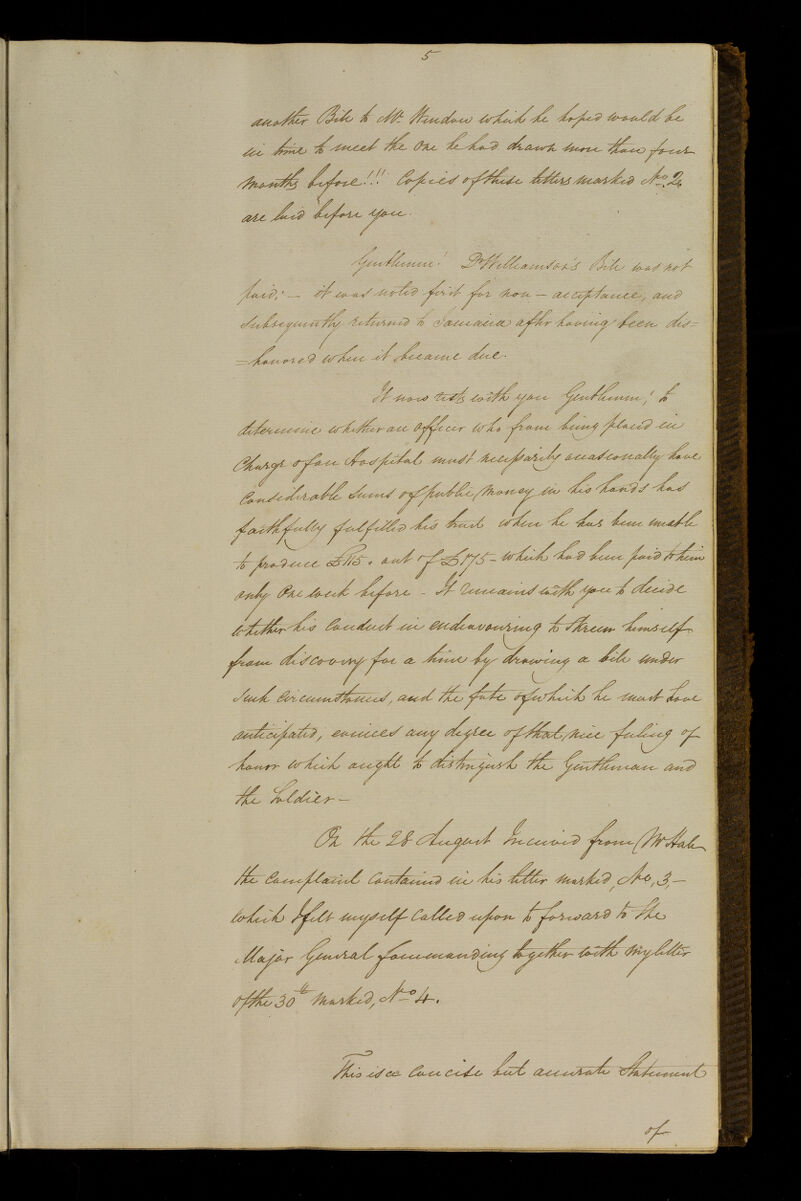 5
another Bill to Mr. Window which he hoped would be
in time to meet the One he had drawn more than four
months before!!! Copies of these letters marked No. 2.
are laid before you.
Gentlemen! Dr Williamson's Bill was not
paid; — it was noted first for non-acceptance, and
subsequently returned to Jamaica after having been dis=
=honored when it became due.
It now rests with you Gentlemen! to
determine whether an officer who from being placed in
Charge of an Hospital must necessarily occasionally have
Considerable Sums of public money in his hands has
faithfully fulfilled his trust when he has been unable
to produce £115. out of £175 - which had been paid to him
only One week before - It remains with you to decide
whether his Conduct in endeavouring to skreen himself
from discovery for a time by drawing a bill under
such circumstances, and the fate of which he must have
anticipated, evinces any degree of that nice feeling of
honor which ought to distinguish the Gentleman and
the Soldier —
On the 28 August I received from Mr Hale
the Complaint Contained in his letter marked, No. 3, —
which I felt myself Called upon to forward to the
Major General Commanding together with my letter
of the 30th marked, No. 4.
This is a Concise but accurate Statement
of